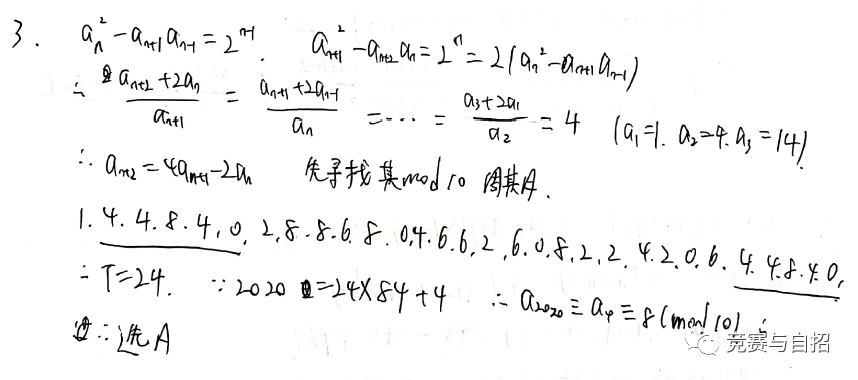 3. aₙ² - aₙ₊₁aₙ₋₁ = 2ⁿ⁻¹. aₙ₊₁² - aₙ₊₂aₙ = 2ⁿ = 2(aₙ² - aₙ₊₁aₙ₋₁)
∴ (aₙ₊₂+2aₙ)/aₙ₊₁ = (aₙ₊₁+2aₙ₋₁)/aₙ = ⋯ = (a₃+2a₁)/a₂ = 4 (a₁=1. a₂=4. a₃=14)
∴ aₙ₊₂ = 4aₙ₊₁-2aₙ 先寻找其mod 10 周期.
1. 4. 4. 8. 4, 0, 2, 8. 8. 6. 8. 0, 4. 6. 6, 2, 6. 0. 8, 2, 2, 4. 2. 0, 6. 4. 4. 8. 4. 0,
∴ T=24. ∵ 2020 =24×84+4 ∴ a₂₀₂₀ ≡ a₄ ≡ 8 (mod 10)
∴ 选A
竞赛与自招